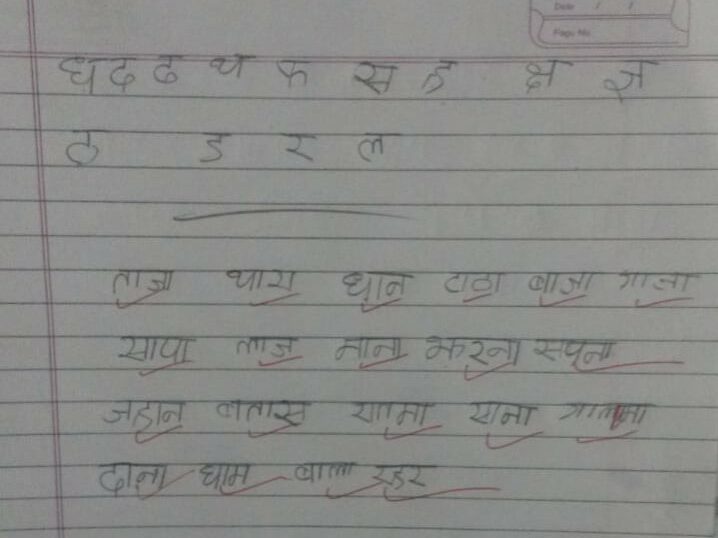 Date / /
Page No.
ध द ढ थ फ स ह क्ष ज्ञ
ठ ड र ल
ताजा धारा धान टाठा बाजा गाजा
सापा लाज नाना झरना सपना
जहान बतास सामा साना
दाना घाम बाला रहर